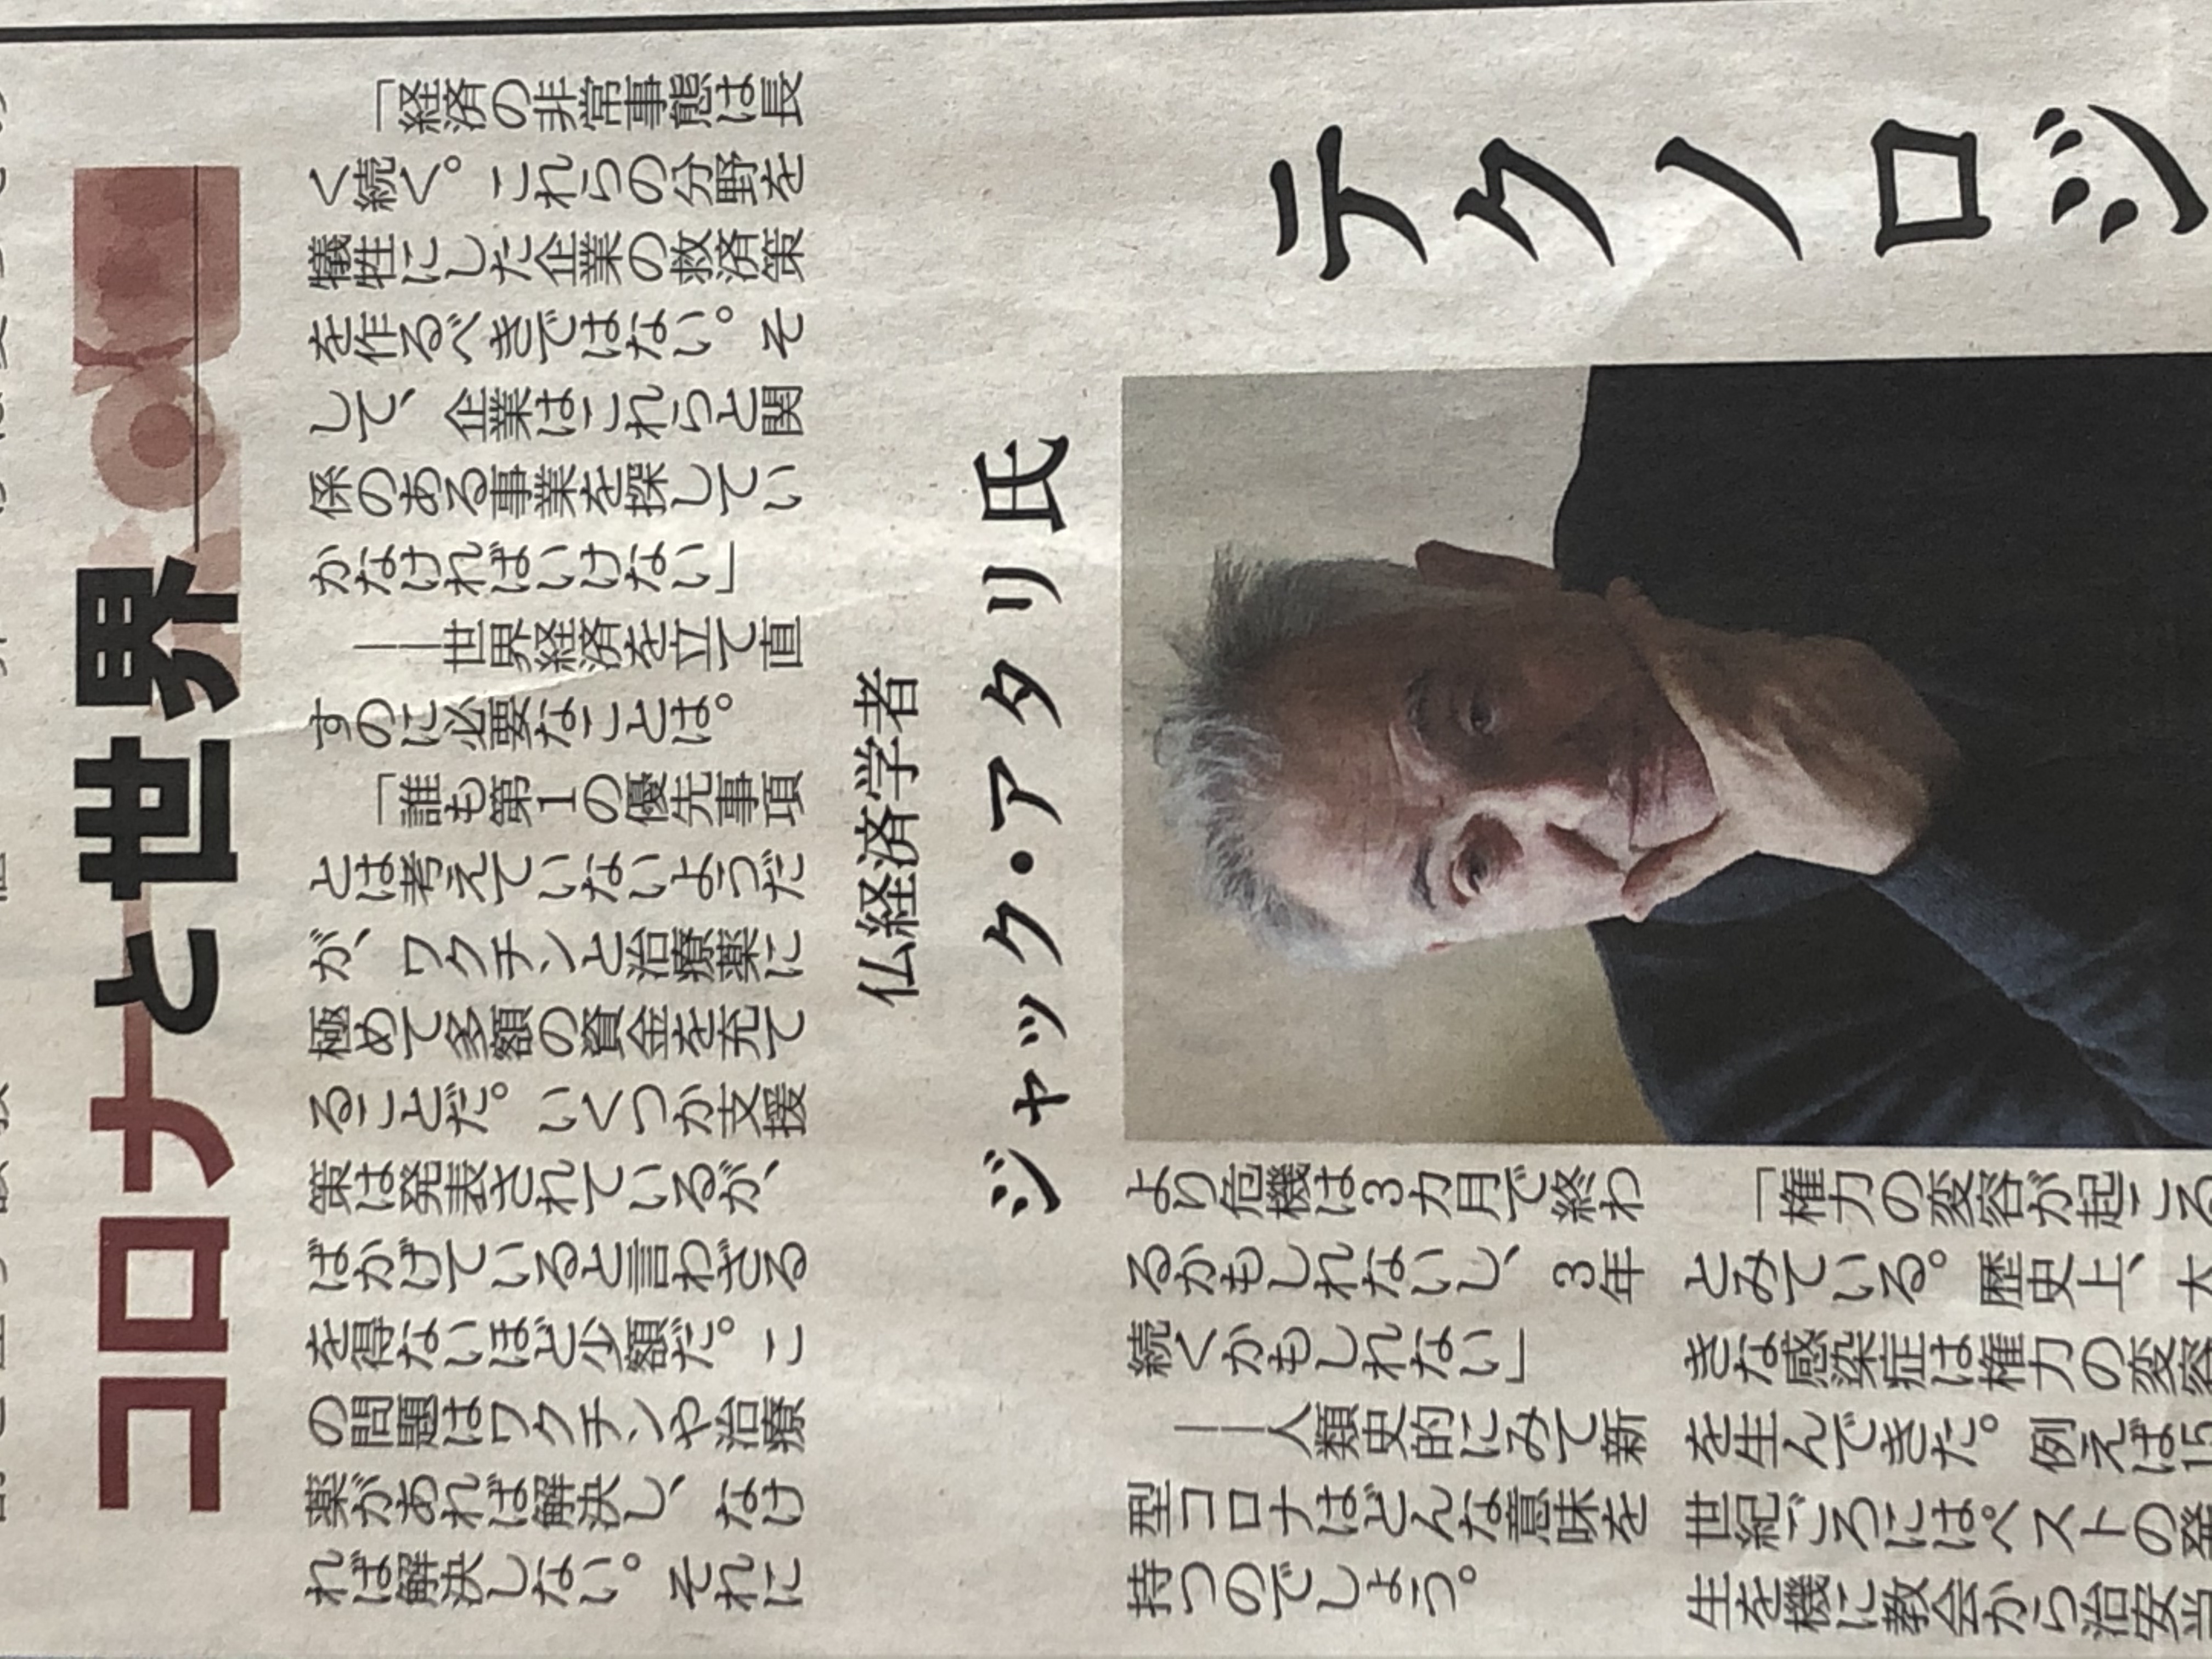 コロナと世界
「経済の非常事態は長
く続く。これらの分野を
犠牲にした企業の救済策
を作るべきではない。そ
して、企業はこれらと関
係のある事業を探してい
かなければいけない」
――世界経済を立て直
すのに必要なことは。
「誰も第1の優先事項
とは考えていないようだ
が、ワクチンと治療薬に
極めて多額の資金を充て
ることだ。いくつか支援
策は発表されているが、
ばかげていると言わざる
を得ないほど少額だ。こ
の問題はワクチンや治療
薬があれば解決し、なけ
れば解決しない。それに
テクノロジ
仏経済学者
ジャック・アタリ氏
より危機は3カ月で終わ
るかもしれないし、3年
続くかもしれない」
――人類史的にみて新
型コロナはどんな意味を
持つのでしょう。
「権力の変容が起こる
とみている。歴史上、大
きな感染症は権力の変容
を生んできた。例えば15
世紀ごろにはペストの発
生を機に教会から治安当